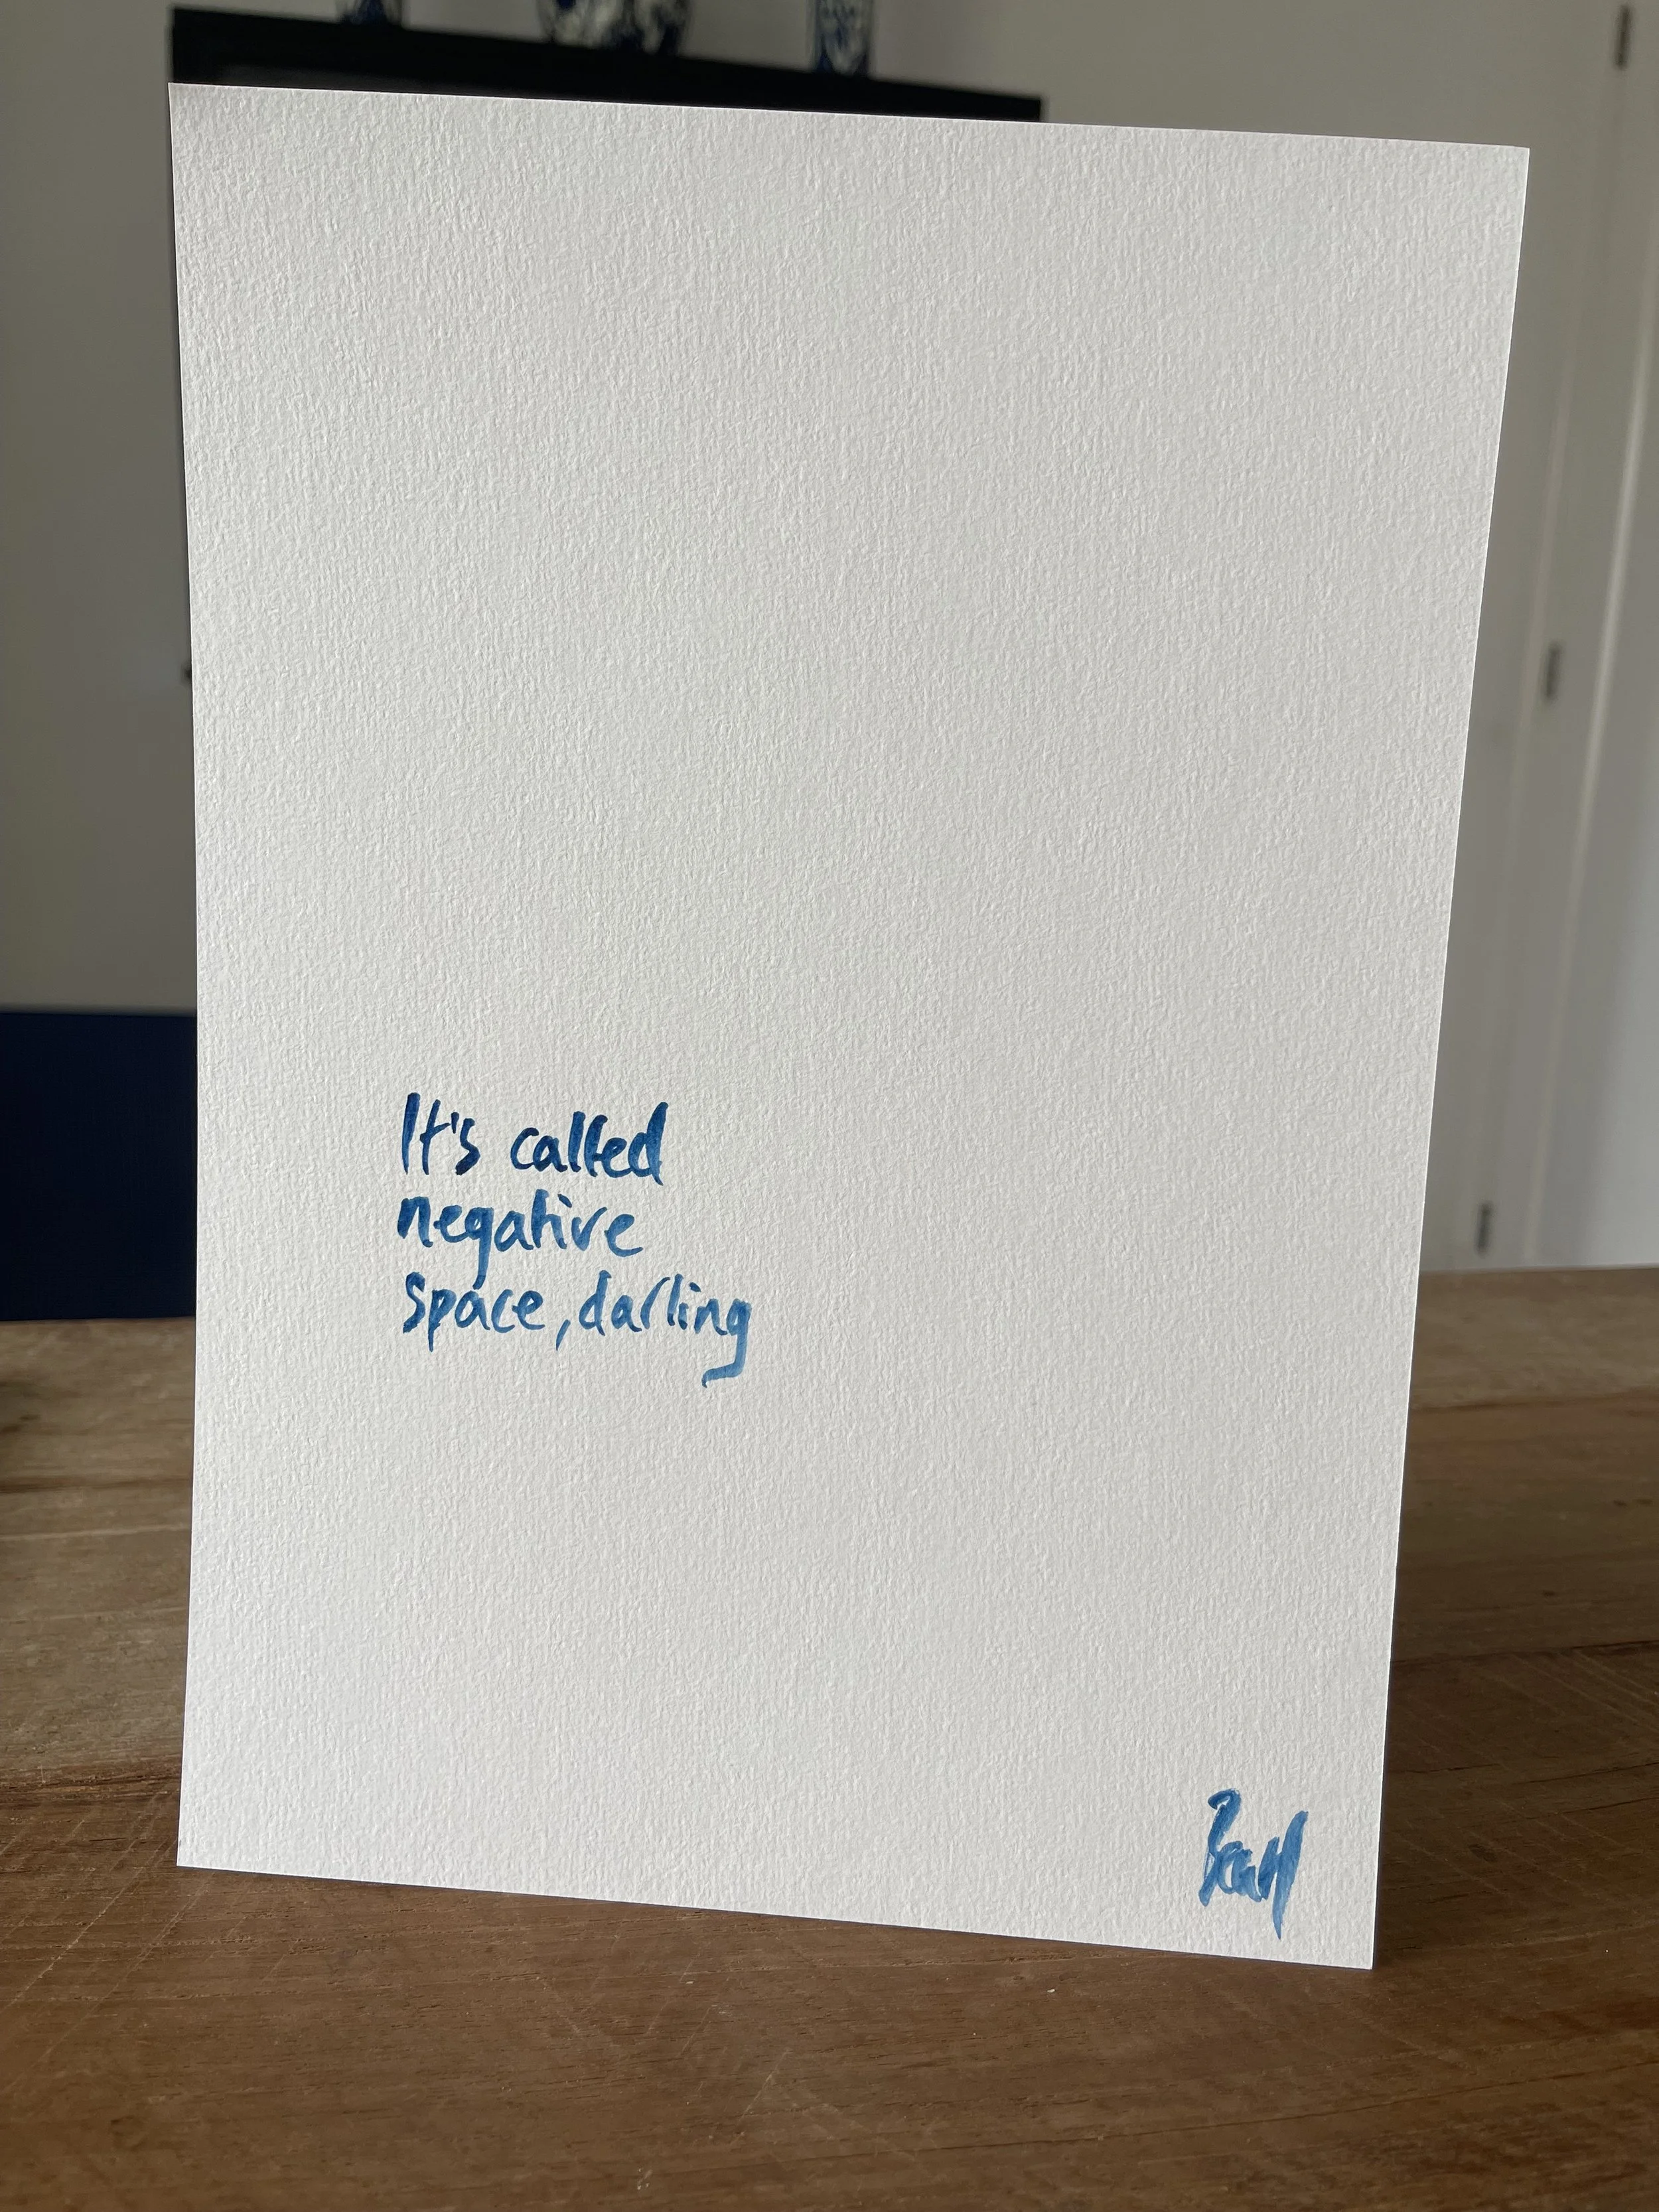 It's called
negative
space, darling